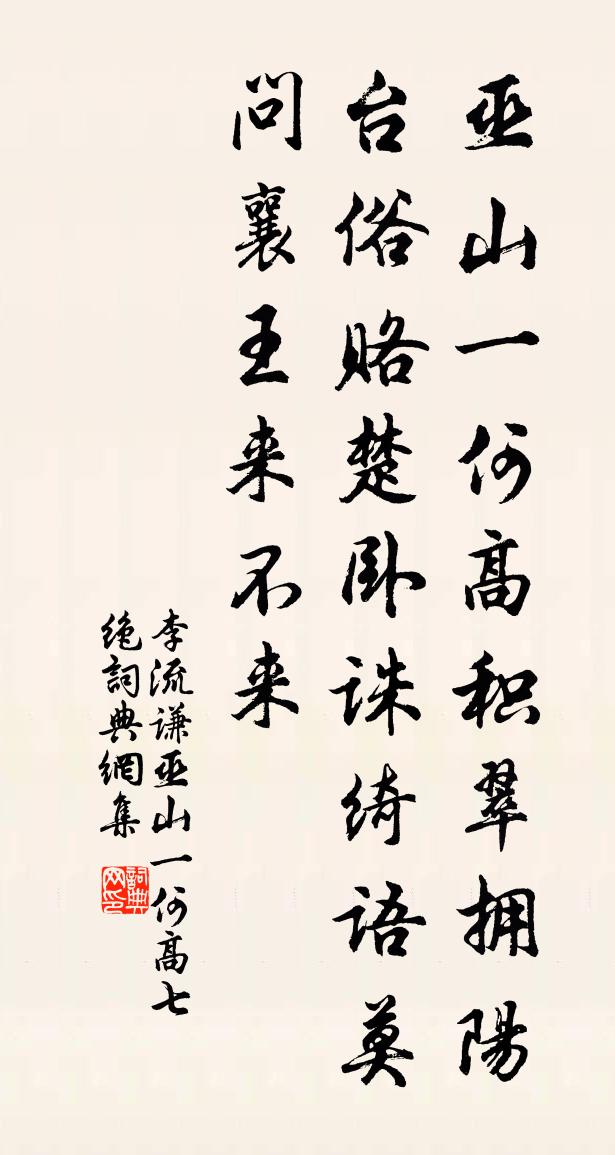 巫山一何高积翠拥陽
台俗赂楚卧诛绮语莫
问襄王来不来
李流谦巫山一何高七
绝詞典網集
詞典
网印